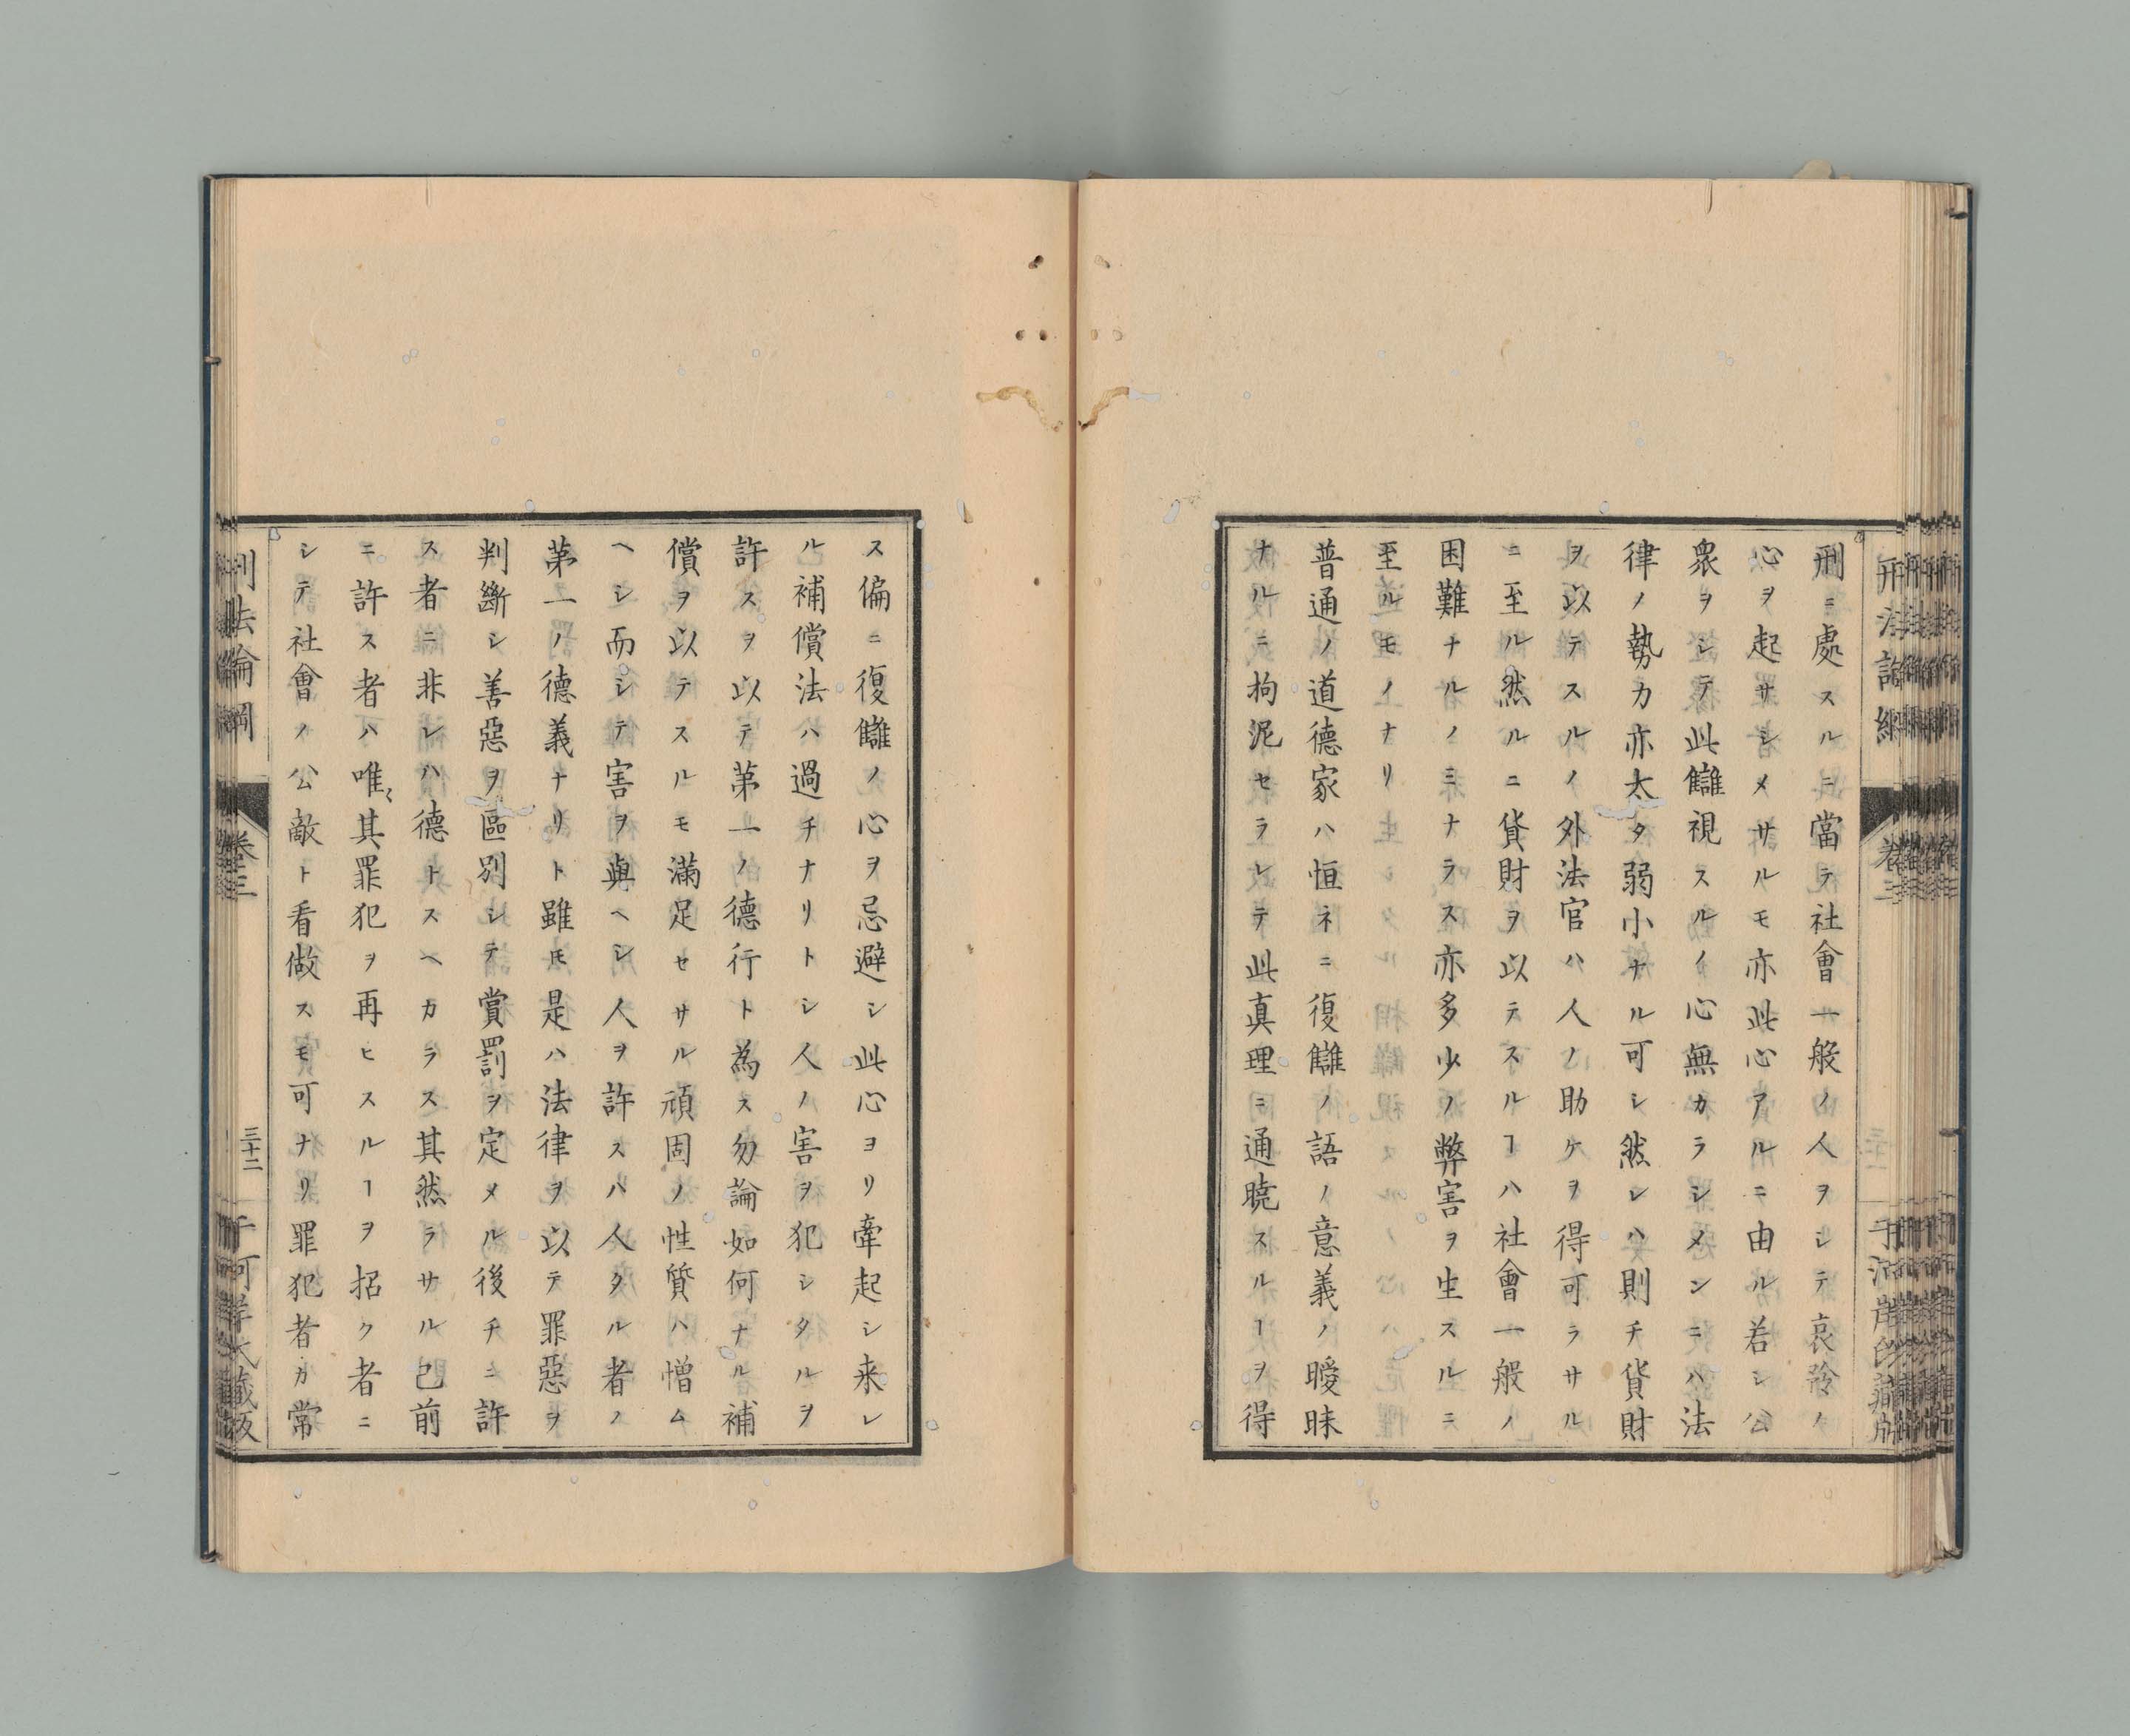 刑ニ處スルニ當テ社會一般ノ人ヲシテ哀矜ノ
心ヲ起サシメサルモ亦此心アルニ由ル若シ公
衆ヲシテ此讎視スルノ心無カラシメンニハ法
律ノ勢力亦太タ弱小ナル可シ然レハ則チ貨財
ヲ以テスルノ外法官ハ人ノ助ケヲ得可ラサル
ニ至ル然ルニ貨財ヲ以テスルヿハ社會一般ノ
困難ナルノミナラス亦多少ノ弊害ヲ生スルニ
至ルモノナリ
普通ノ道德家ハ恒ネニ復讎ノ語ノ意義ノ曖昧
ナルニ拘泥セラレテ此真理ニ通曉スルヿヲ得
ス偏ニ復讎ノ心ヲ忌避シ此心ヨリ牽起シ来レ
ル補償法ハ過チナリトシ人ノ害ヲ犯シタルヲ
許スヲ以テ第一ノ德行ト為ス勿論如何ナル補
償ヲ以テスルモ滿足セサル頑固ノ性質ハ憎ム
ヘシ而シテ害ヲ與ヘシ人ヲ許スハ人タル者ノ
第一ノ德義ナリト雖𪜈是ハ法律ヲ以テ罪惡ヲ
判斷シ善惡ヲ區別シテ賞罰ヲ定メル後チニ許
ス者ニ非レハ德トスヘカラス其然ラサル已前
ニ許ス者ハ唯〻其罪犯ヲ再ヒスルヿヲ招ク者ニ
シテ社會ノ公敵ト看做スモ可ナリ罪犯者カ常
刑法論綱
卷三
三十二